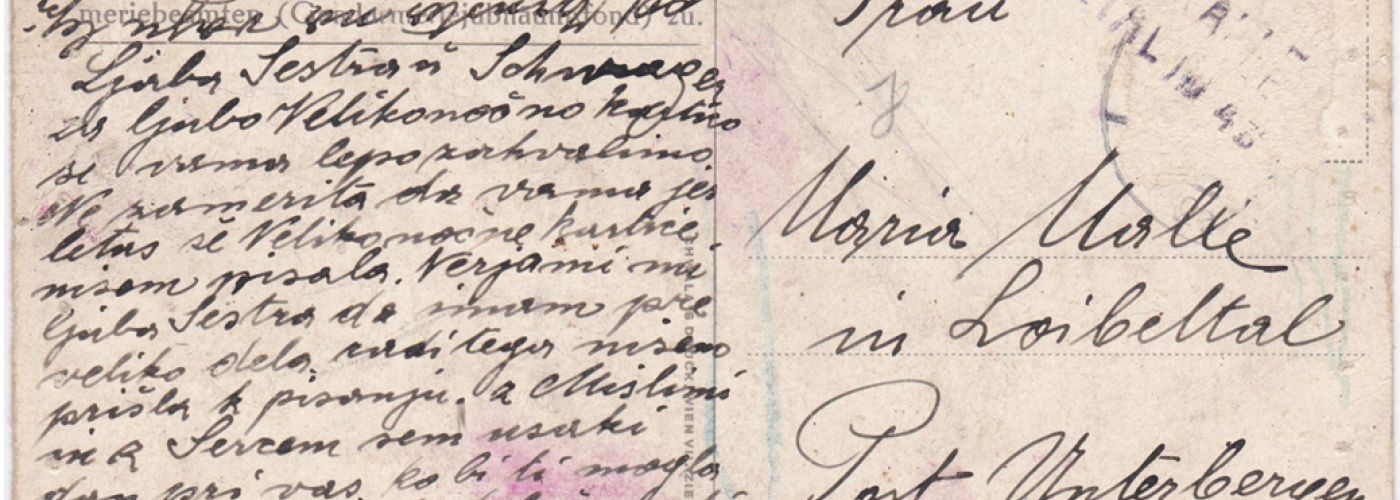 meriebeamten (Gendarmeriejubiläumsfond) zu.
Ljuba Sestra ŭ Schwager
za ljubo Velikonočno kartico
se vama lepo zahvalimo.
Ne zamerita da vama jes
letas še Velikonočne kartice
nisem pisala. Verjami mi
ljuba Sestra da imam pre
veliko dela, radi tega nisem
prišla k pisanju. z Mislimi
in z Sercem sem usaki
dan pri vas, ko bi ti mogla
Frau
Maria Malle
in Loibeltal
Post Unterbergen